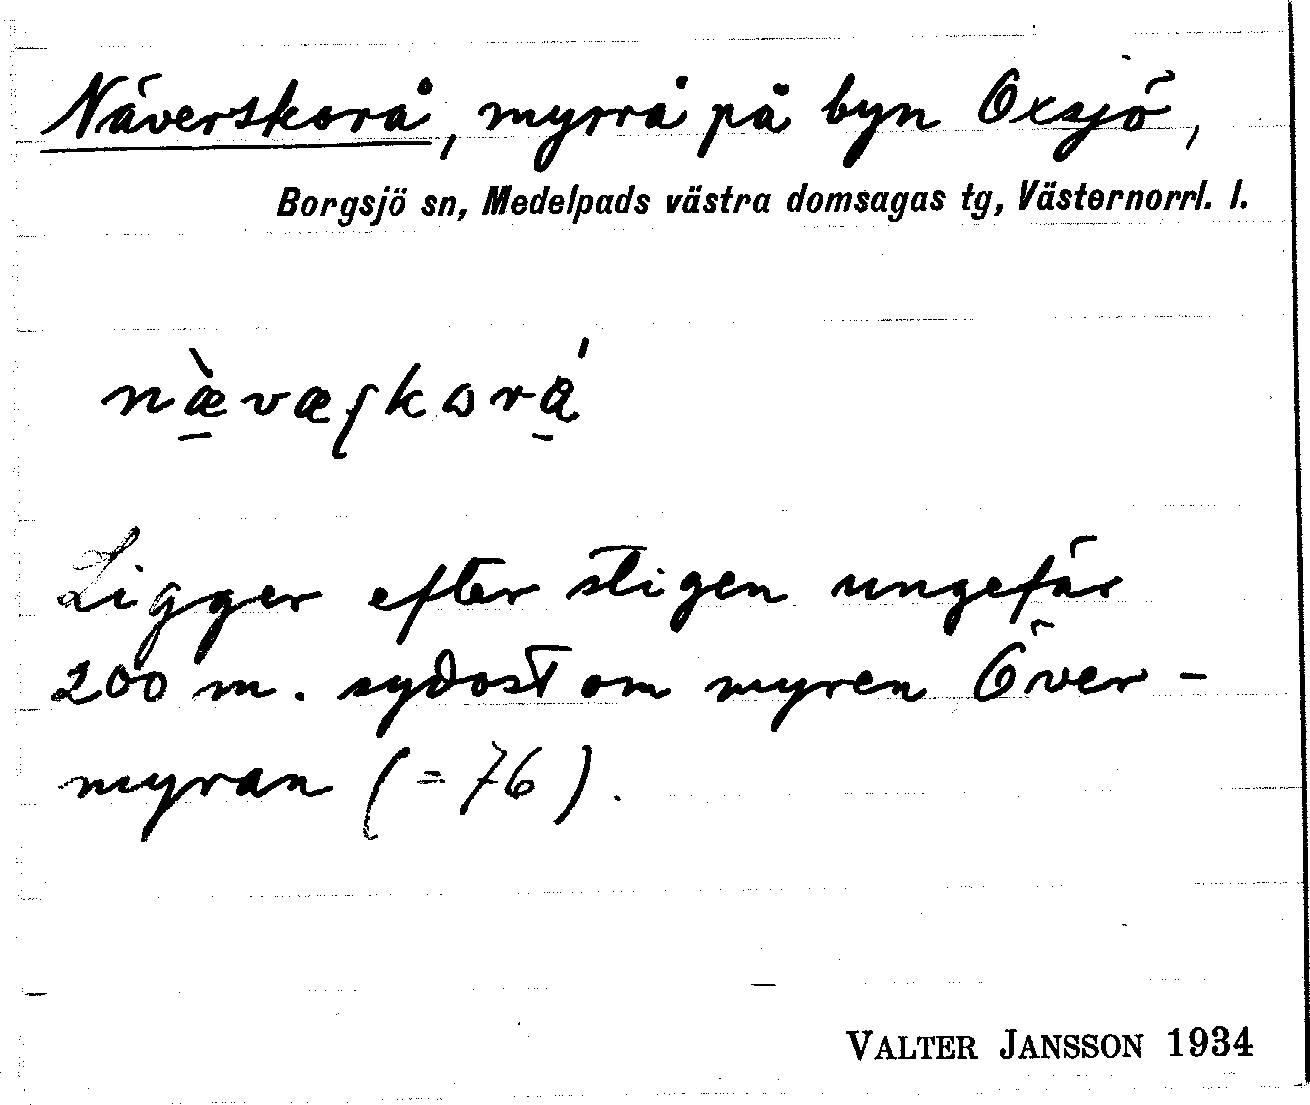 Näverskorå, myrrå på byn Oxsjö,
Borgsjö sn, Medelpads västra domsagas tg, Västernorrl. l.
Ligger efter stigen ungefär
200 m. sydost om myren Över-
myran (= 76).
VALTER JANSSON 1934